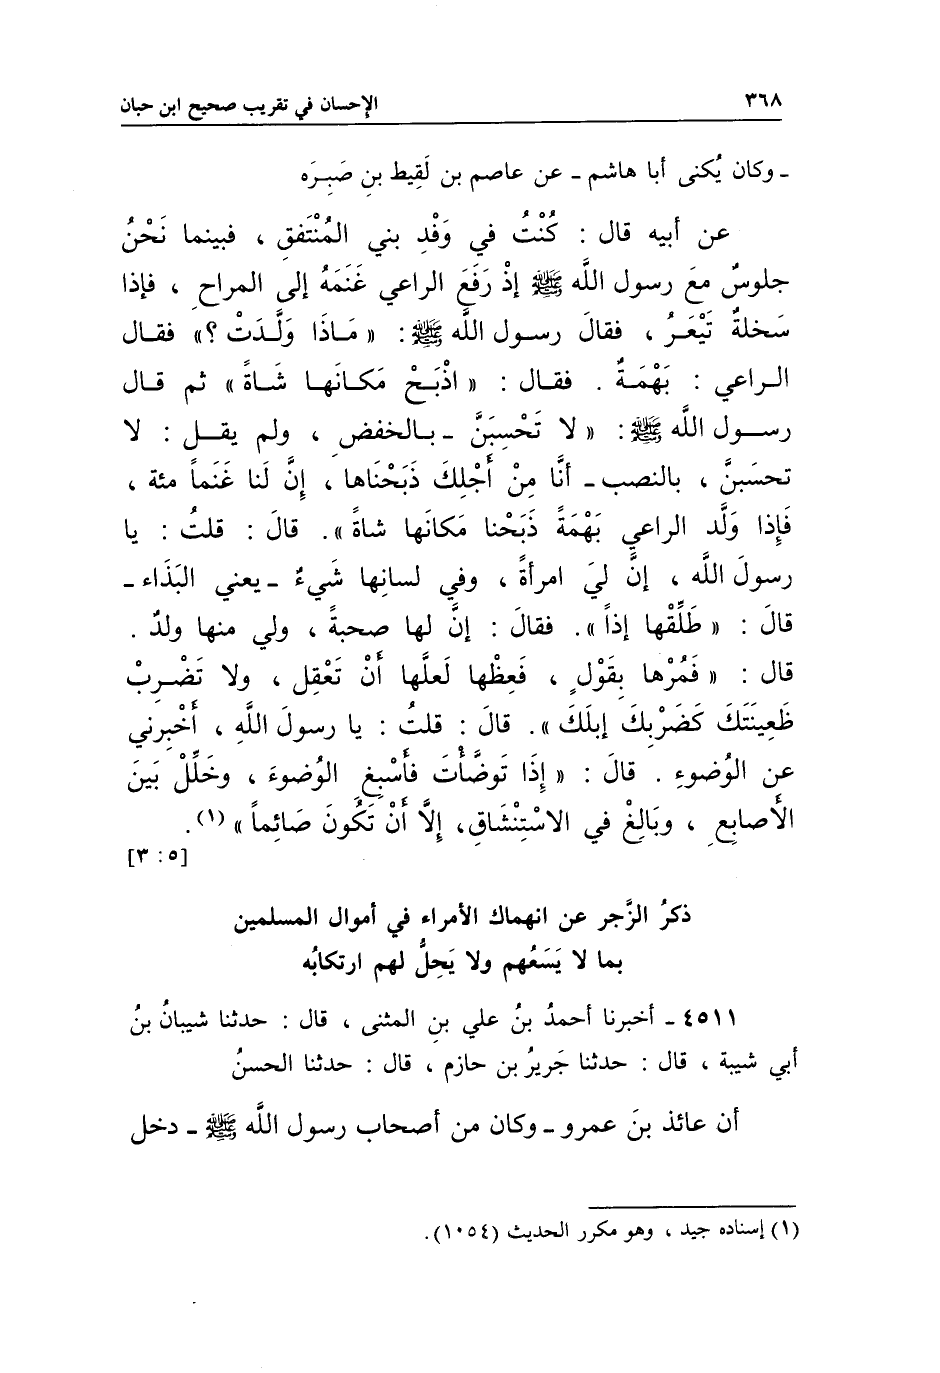 ٣٦٨ الإحسان في تقريب صحيح ابن حبان
ـ وكان يُكنى أبا هاشم ـ عن عاصم بن لَقِيط بنِ صَبِرَه
عن أبيه قال : كُنْتُ في وَفْدِ بني المُنْتَفِقِ ، فبينما نَحْنُ
جلوسٌ معَ رسول اللَّه ﷺ إذْ رَفَعَ الراعي غَنَمَهُ إلى المراحِ ، فإذا
سَخلةٌ تَيْعَرُ ، فقالَ رسول اللَّه ﷺ : « مَاذَا وَلَّدَتْ ؟» فقال
الراعي : بَهْمَةٌ . فقال : « اذْبَحْ مَكانَها شَاةً » ثم قال
رسول اللَّه ﷺ : « لا تَحْسِبَنَّ ـ بالخفضِ ، ولم يقل : لا
تحسَبنَّ ، بالنصب ـ أنَّا مِنْ أَجْلِكَ ذَبَحْنَاها ، إنَّ لَنا غَنَماً مئة ،
فَإِذا وَلَّد الراعي بَهْمَةً ذَبَحْنا مَكانَها شاةً ». قالَ : قلتُ : يا
رسولَ اللَّه ، إنَّ ليَ امرأةً ، وفي لسانِها شَيءٌ ـ يعني البَذَاء ـ
قالَ : « طَلِّقْها إذاً ». فقالَ : إنَّ لها صحبةً ، ولي منها ولدٌ .
قال : « فَمُرْها بِقَوْلٍ ، فَعِظْها لَعلَّها أَنْ تَعْقِل ، ولا تَضْرِبْ
ظَعِينَتَكَ كَضَرْبِكَ إبلَكَ ». قالَ : قلتُ : يا رسولَ اللَّهِ ، أَخْبرني
عن الوُضوءِ . قالَ : « إِذَا تَوضَّأْتَ فأَسْبِغِ الوُضوءَ ، وخَلِّلْ بَينَ
الأَصابِعِ ، وبَالِغْ في الاسْتِنْشَاقِ، إلَّا أَنْ تَكُونَ صَائِماً » (١).
[٥: ٣]
ذكرُ الزَّجر عن انهماك الأمراء في أموال المسلمين
بما لا يَسَعُهم ولا يَحِلُّ لهم ارتكابُه
٤٥١١ ـ أخبرنا أحمدُ بنُ علي بنِ المثنى ، قال : حدثنا شيبانُ بنُ
أبي شيبة ، قال : حدثنا جَريرُ بن حازم ، قال : حدثنا الحسنُ
أن عائذ بنَ عمرو ـ وكان من أصحاب رسول اللَّه ﷺ ـ دخل
(١) إسناده جيد ، وهو مكرر الحديث (١٠٥٤).